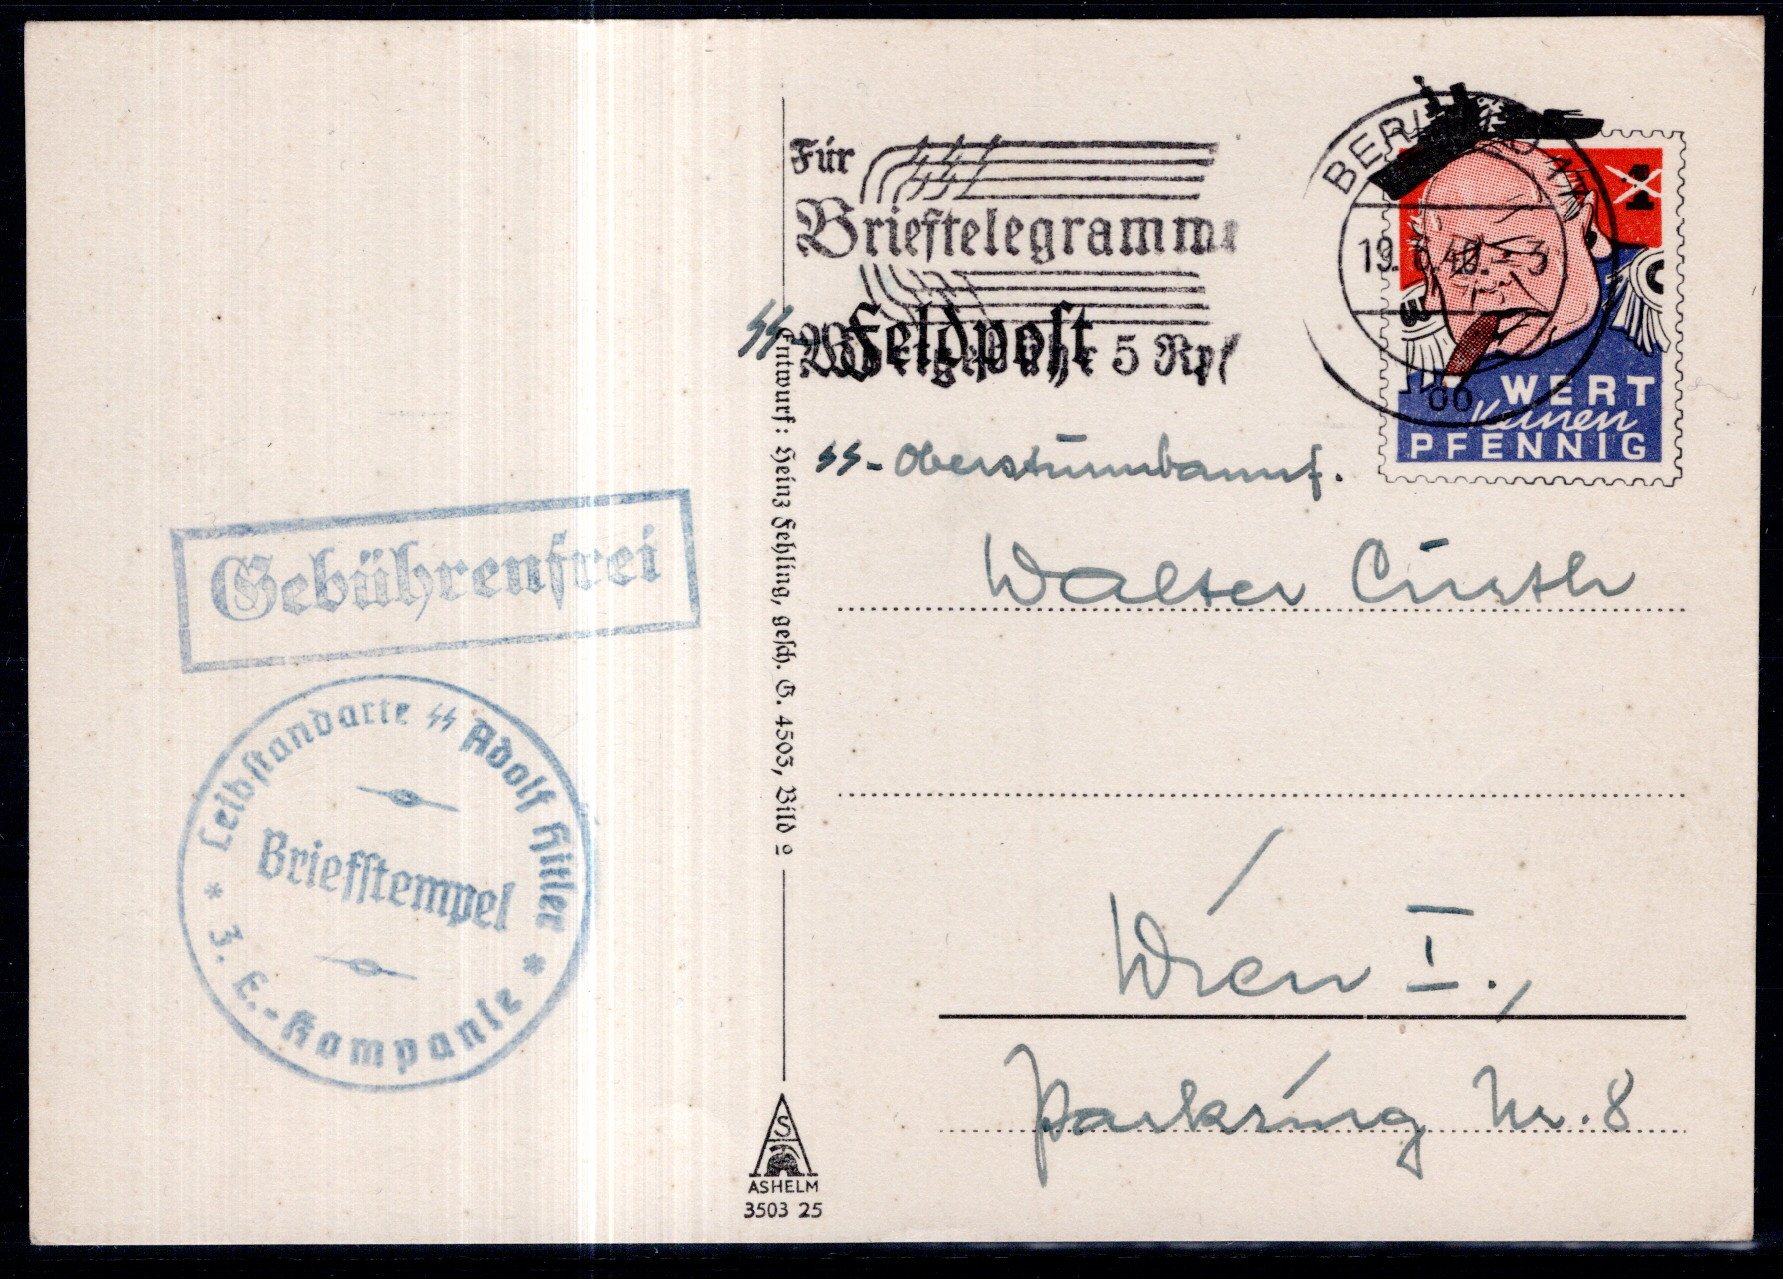 Für
Brieftelegramme
ᛋᛋ-Feldpost
5 Rpf
BERLIN
19. 40. - 3
1
WERT
Keinen
PFENNIG
ᛋᛋ-Obersturmbannf.
Walter Curth
Wien I.,
Parkring Nr. 8
Gebührenfrei
Leibstandarte ᛋᛋ Adolf Hitler
Briefstempel
* 3. E.-Kompanie *
Entwurf: Heinz Fehling, gesch. G. 4503, Bild 9
ASHELM
3503 25